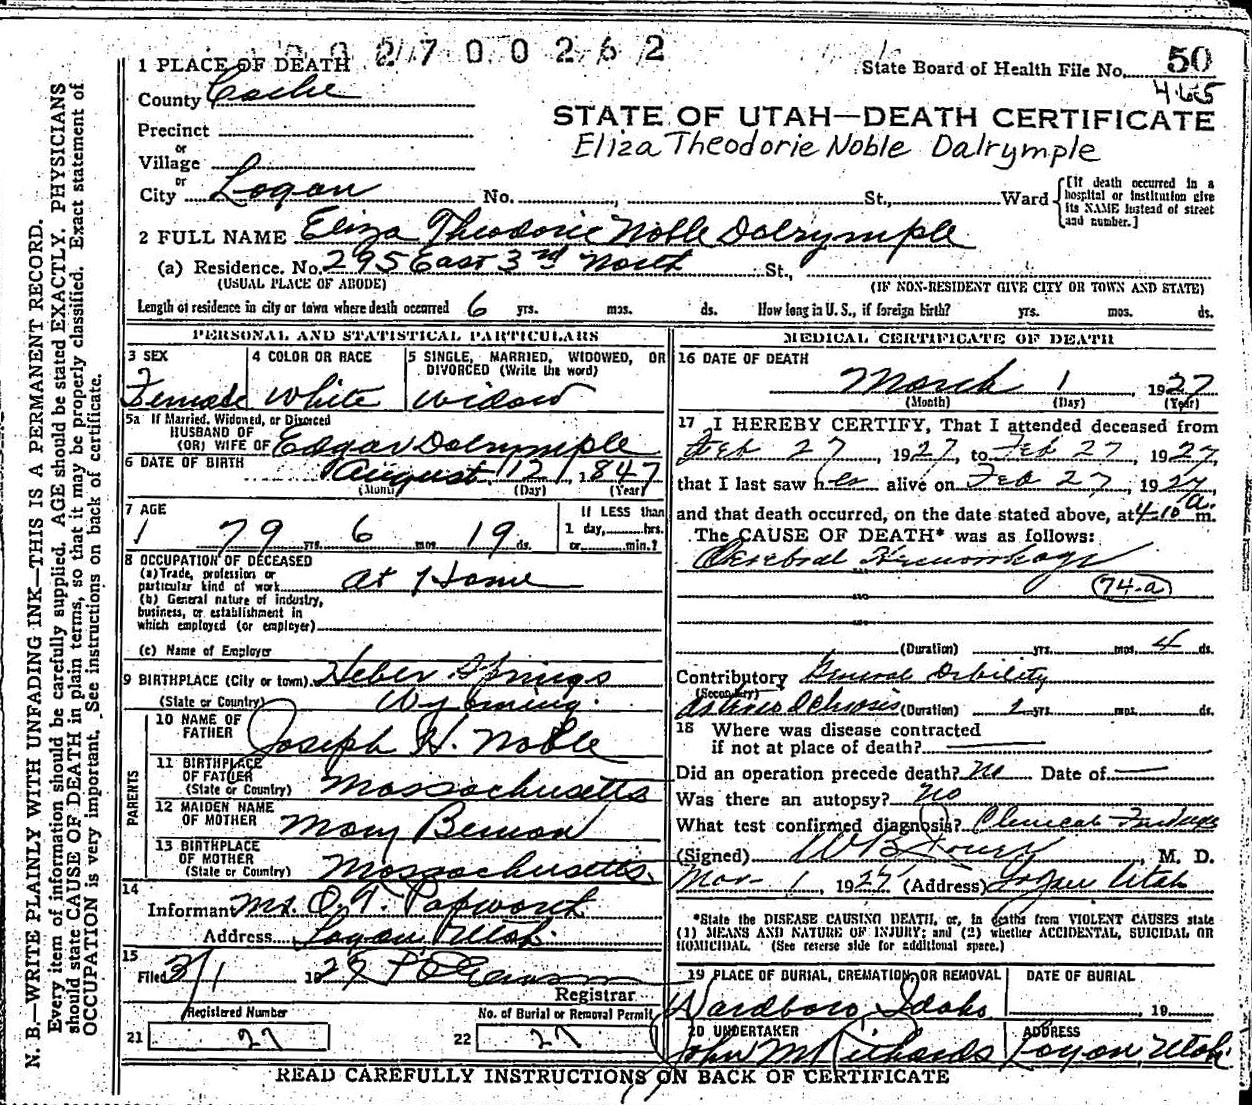 002700262
1 PLACE OF DEATH
State Board of Health File No. 50
465
County Cache
STATE OF UTAH—DEATH CERTIFICATE
Eliza Theodorie Noble Dalrymple
Precinct
or
Village
or
City Logan No. , St., Ward
[If death occurred in a hospital or institution give its NAME instead of street and number.]
2 FULL NAME Eliza Theodorie Noble Dalrymple
(a) Residence. No. 295 East 3rd North St.,
(USUAL PLACE OF ABODE) (IF NON-RESIDENT GIVE CITY OR TOWN AND STATE)
Length of residence in city or town where death occurred 6 yrs. mos. ds. How long in U. S., if foreign birth? yrs. mos. ds.
PERSONAL AND STATISTICAL PARTICULARS
3 SEX
Female
4 COLOR OR RACE
White
5 SINGLE, MARRIED, WIDOWED, OR
DIVORCED (Write the word)
Widow
5a If Married, Widowed, or Divorced
HUSBAND OF
(OR) WIFE OF Edgar Dalrymple
6 DATE OF BIRTH
August 12, 1847
(Month) (Day) (Year)
7 AGE
79 yrs. 6 mos. 19 ds.
If LESS than
1 day, hrs.
or min.?
8 OCCUPATION OF DECEASED
(a) Trade, profession or
particular kind of work At Home
(b) General nature of industry,
business, or establishment in
which employed (or employer)
(c) Name of Employer
9 BIRTHPLACE (City or town) Heber Springs
(State or Country) Wyoming.
PARENTS
10 NAME OF
FATHER Joseph H. Noble
11 BIRTHPLACE
OF FATHER
(State or Country) Massachusetts
12 MAIDEN NAME
OF MOTHER Mary Beman
13 BIRTHPLACE
OF MOTHER
(State or Country) Massachusetts.
14
Informant Mrs. O. T. Papworth
Address Logan, Utah.
15
Filed 3/1 1927
Registrar
Registered Number
21 27
No. of Burial or Removal Permit
22 27
MEDICAL CERTIFICATE OF DEATH
16 DATE OF DEATH
March 1, 1927
(Month) (Day) (Year)
17 I HEREBY CERTIFY, That I attended deceased from
Feb 27, 1927, to Feb 27, 1927,
that I last saw her alive on Feb 27, 1927,
and that death occurred, on the date stated above, at 4-10 a. m.
The CAUSE OF DEATH* was as follows:
Cerebral Hemorrhage
74-a
(Duration) yrs. mos. 4 ds.
Contributory General Debility
(Secondary)
(Duration) yrs. mos. ds.
18 Where was disease contracted
if not at place of death?
Did an operation precede death? No Date of
Was there an autopsy? No
What test confirmed diagnosis? Clinical Findings
(Signed) , M. D.
Mar 1, 1927 (Address) Logan Utah
*State the DISEASE CAUSING DEATH, or, in deaths from VIOLENT CAUSES state
(1) MEANS AND NATURE OF INJURY; and (2) whether ACCIDENTAL, SUICIDAL OR
HOMICIDAL. (See reverse side for additional space.)
19 PLACE OF BURIAL, CREMATION, OR REMOVAL
Wardboro, Idaho
DATE OF BURIAL
, 19
20 UNDERTAKER
John M Richards
ADDRESS
Logan, Utah
READ CAREFULLY INSTRUCTIONS ON BACK OF CERTIFICATE
N. B.—WRITE PLAINLY WITH UNFADING INK—THIS IS A PERMANENT RECORD.
Every item of information should be carefully supplied. AGE should be stated EXACTLY. PHYSICIANS
should state CAUSE OF DEATH in plain terms, so that it may be properly classified. Exact statement of
OCCUPATION is very important. See instructions on back of certificate.